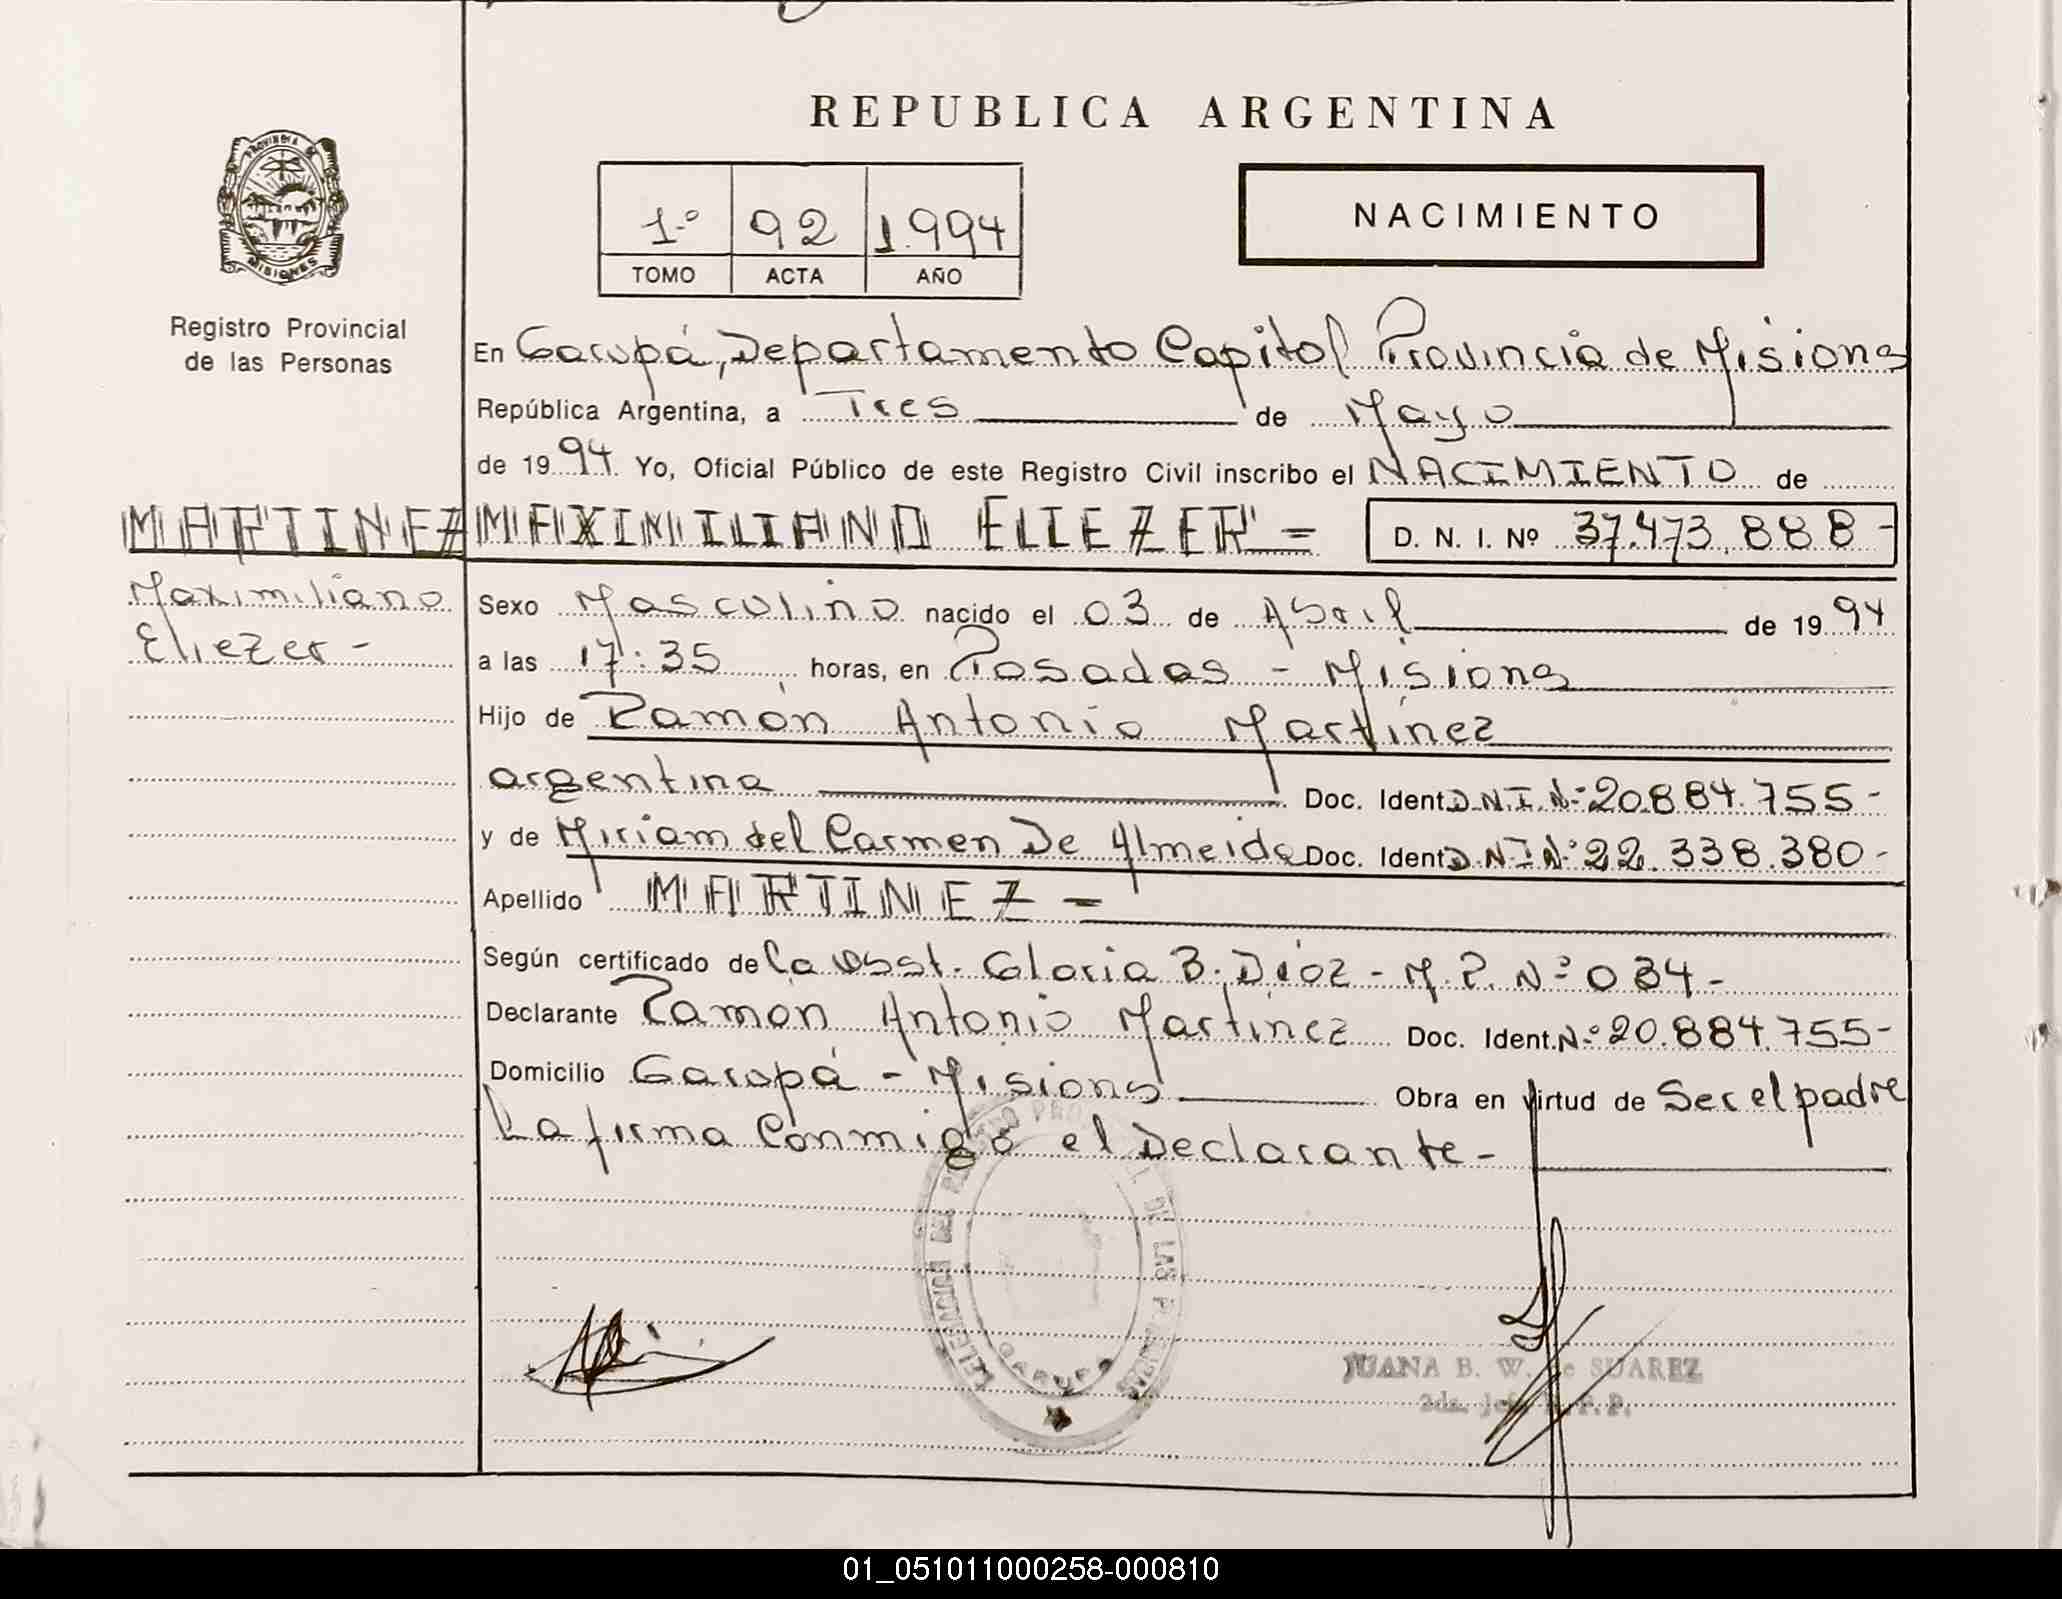 REPUBLICA ARGENTINA
PROVINCIA DE
MISIONES
Registro Provincial
de las Personas
1º 92 1.994
TOMO ACTA AÑO
NACIMIENTO
En Garupá, Departamento Capital Provincia de Misiones
República Argentina, a Tres de Mayo
de 1994. Yo, Oficial Público de este Registro Civil inscribo el NACIMIENTO de
MARTINEZ MAXIMILIANO ELIEZER = D. N. I. Nº 37.473.888-
Maximiliano
Eliezer -
Sexo Masculino nacido el 03 de Abril de 1994
a las 17:35 horas, en Posadas - Misiones
Hijo de Ramón Antonio Martínez
argentina Doc. Ident. D.N.I. Nº 20.884.755-
y de Miriam del Carmen De Almeida Doc. Ident. D.N.I Nº 22.338.380-
Apellido MARTINEZ -
Según certificado de la Obst. Gloria B. Díaz - M.P. Nº 034-
Declarante Ramón Antonio Martínez Doc. Ident. Nº 20.884.755-
Domicilio Garupá - Misiones Obra en virtud de Ser el padre
La firma Conmigo el Declarante -
DELEGACION DEL REGISTRO PROVINCIAL DE LAS PERSONAS
GARUPA
JUANA B. W. de SUAREZ
2da. Jefe R. P. P.
01_051011000258-000810